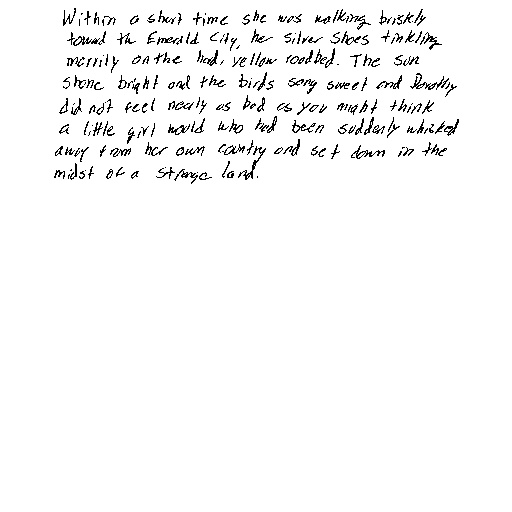 Within a short time she was walking briskly
toward the Emerald City, her Silver Shoes tinkling
merrily on the hard, yellow roadbed. The sun
shone bright and the birds sang sweet and Dorothy
did not feel nearly as bad as you might think
a little girl would who had been suddenly whisked
away from her own country and set down in the
midst of a strange land.